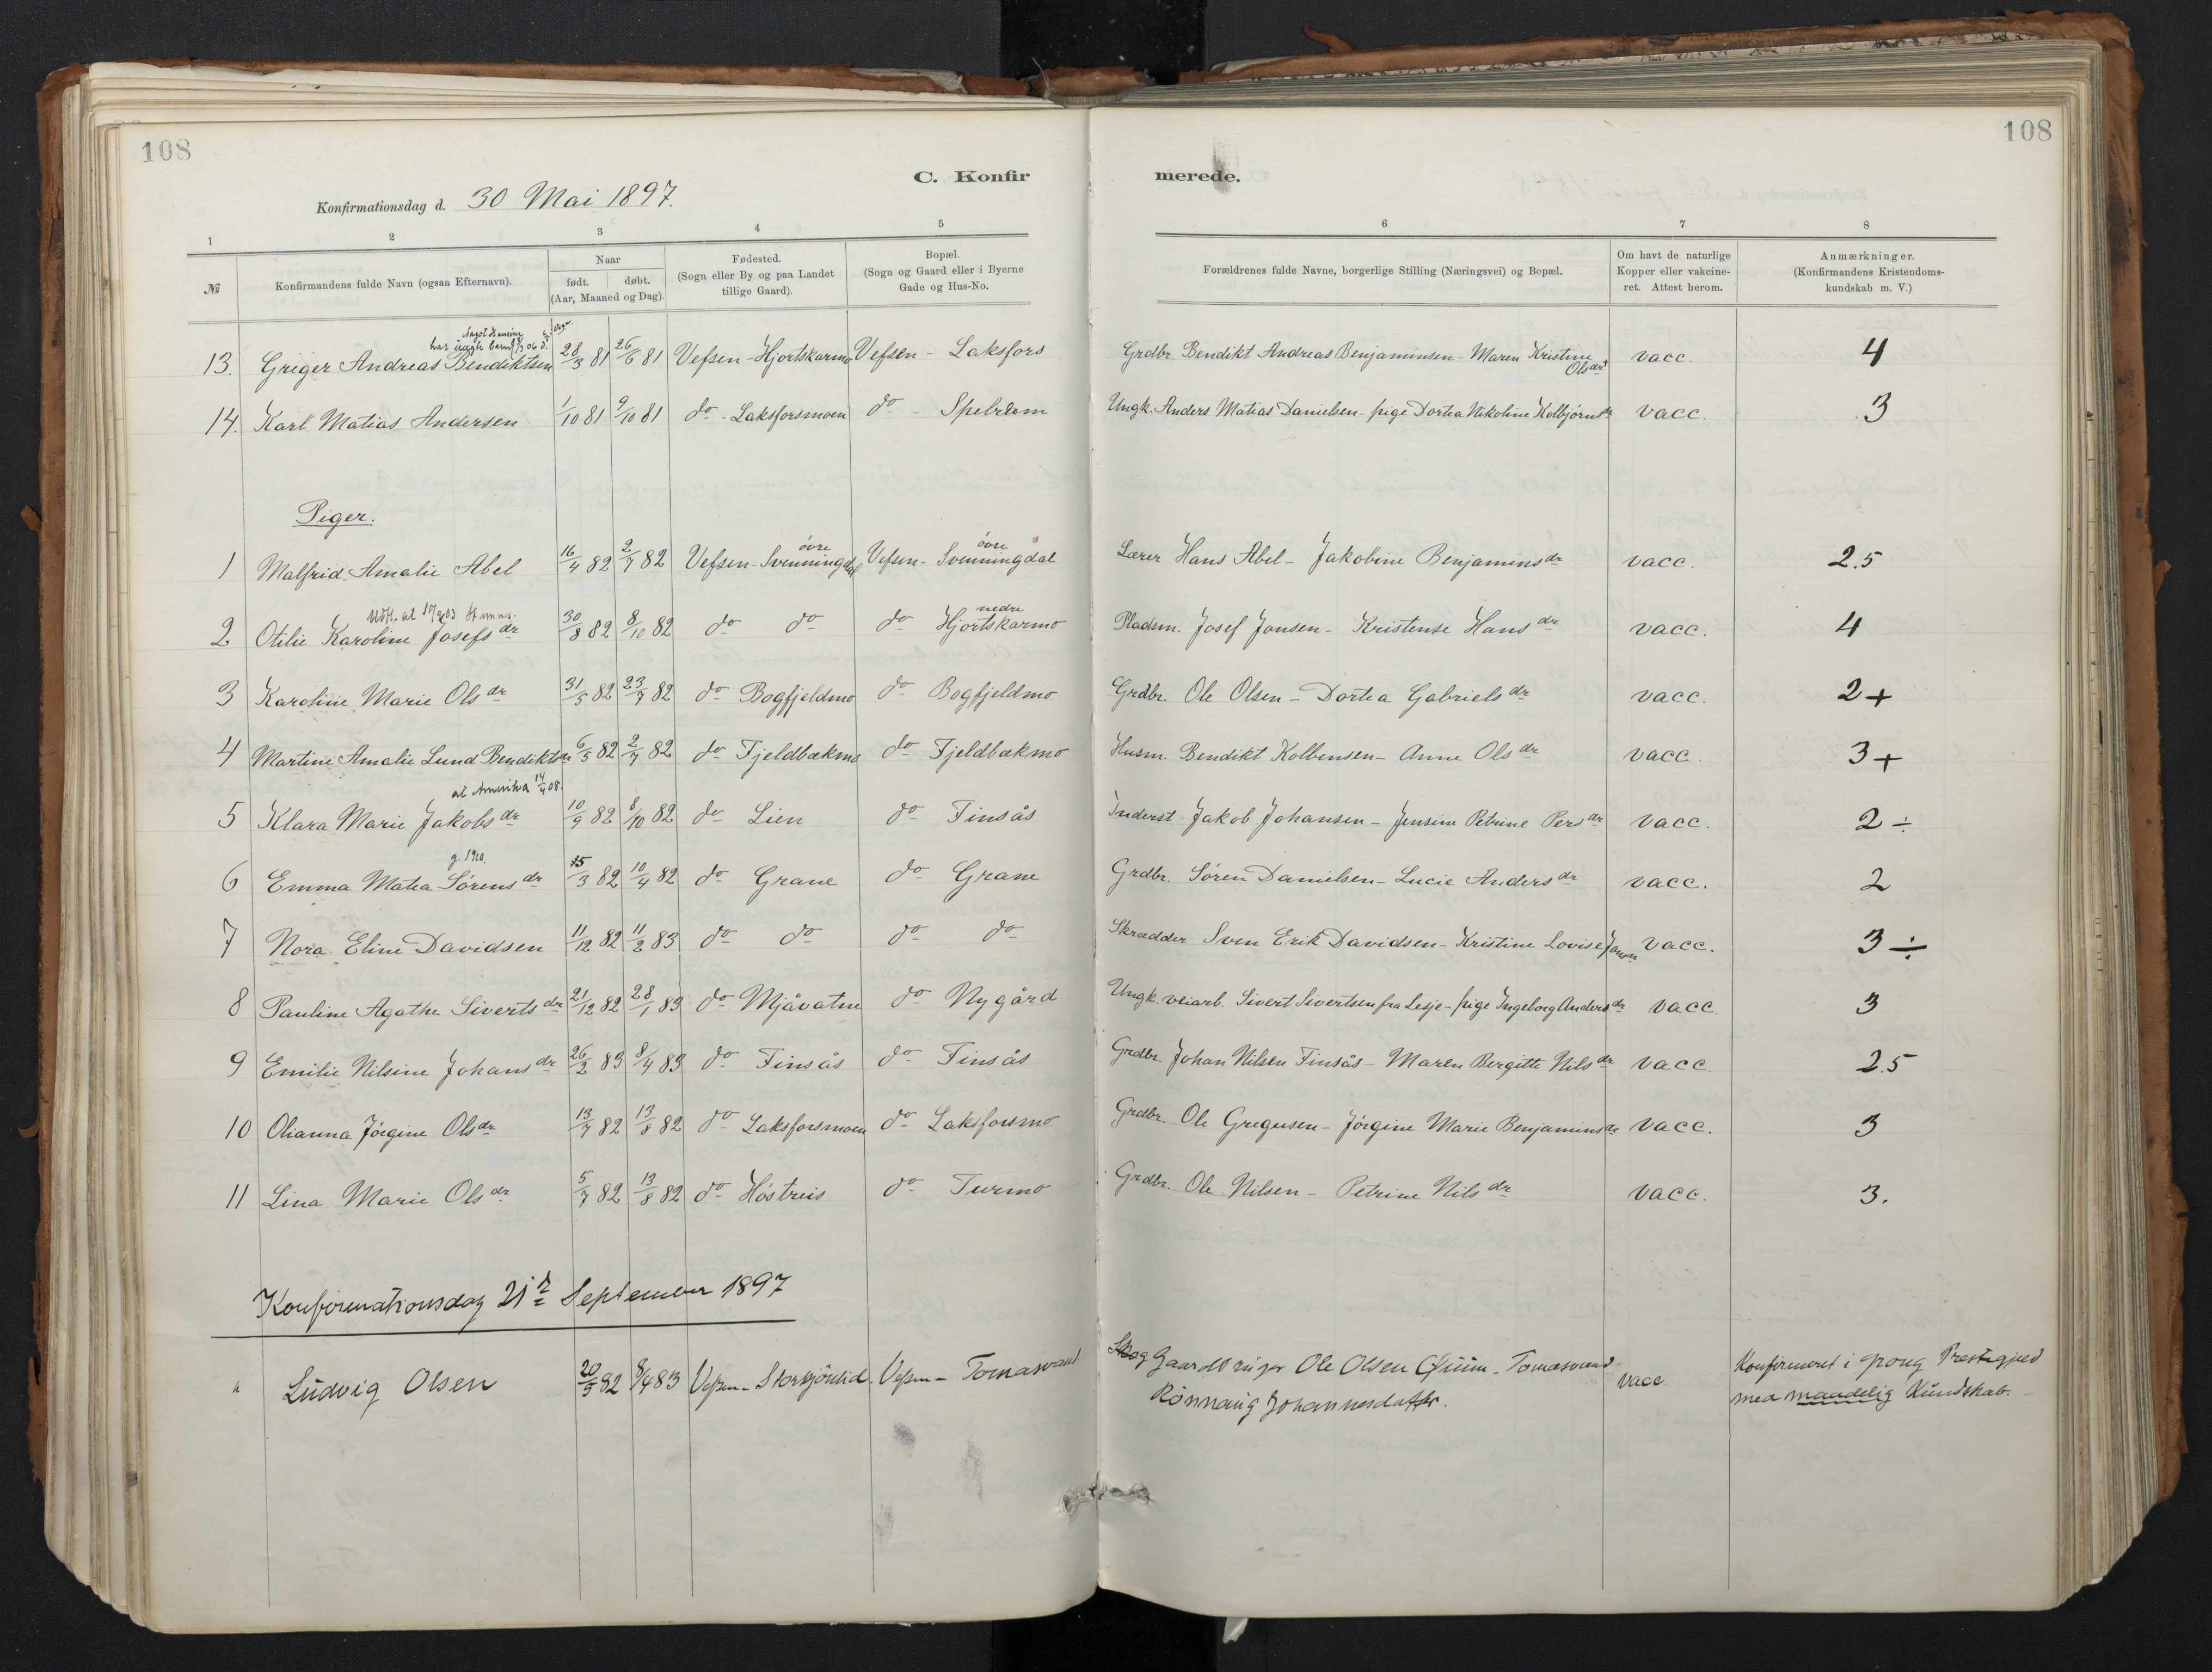 108
108
C. Konfir merede.
Konfirmationsdag d. 30 Mai 1897.
1 2 3 4 5 6 7 8
№ Konfirmandens fulde Navn (ogsaa Efternavn). Naar født. døbt. (Aar, Maaned og Dag). Fødested. (Sogn eller By og paa Landet tillige Gaard). Bopæl. (Sogn og Gaard eller i Byerne Gade og Hus-No. Forældrenes fulde Navne, borgerlige Stilling (Næringsvei) og Bopæl. Om havt de naturlige Kopper eller vakcineret. Attest herom. Anmærkninger. (Konfirmandens Kristendomskundskab m. V.)
har uægte barn
13. Greger Andreas Bendiktsen 28/3 81 26/6 81 Vefsen - Hjortskarmo Vefsen - Laksfors Grdbr. Bendikt Andreas Benjaminsen - Maren Kristine Olsdr vacc. 4
14. Karl Matias Andersen 1/10 81 9/10 81 do - Laksforsmoen do - Ungk. Anders Matias Danielsen - pige Dortea Nikoline Kolbjørnsdr vacc. 3
Piger.
1 Malfrid Amalie Abel 16/4 82 2/7 82 Vefsen - øvre Svenningdal Vefsen - øvre Svenningdal Lærer Hans Abel - Jakobine Benjaminsdr vacc. 2.5
2 Otilie Karoline Josefsdr 30/8 82 8/10 82 do do do nedre Hjortskarmo Pladsm. Josef Jonsen - Kristense Hansdr vacc. 4
3 Karoline Marie Olsdr 31/5 82 23/7 82 do Bogfjeldmo do Bogfjeldmo Grdbr. Ole Olsen - Dortea Gabrielsdr vacc. 2+
4 Martine Amalie Lund Bendiktsdr 6/5 82 2/7 82 do Fjeldbækmo do Fjeldbækmo Husm. Bendikt Kolbensen - Anne Olsdr vacc. 3+
at Amerika 14/4 08.
5 Klara Marie Jakobsdr 10/9 82 8/10 82 do Lien do Finsås Inderst Jakob Johansen - Jensine Petrine Persdr vacc. 2 ÷
g. 1910.
6 Emma Matea Sørensdr 15/3 82 10/4 82 do Grane do Grane Grdbr. Søren Danielsen - Lucie Andersdr vacc. 2
7 Nora Eline Davidsen 11/12 82 11/2 83 do do do do Skrædder Sven Erik Davidsen - Kristine Lovise vacc. 3 ÷
8 Pauline Agathe Sivertsdr 21/12 82 28/1 83 do Mjåvatne do Nygård Ungk. veiarb. Sivert Sivertsen fra Lesje - pige Ingeborg Andersdr vacc. 3
9 Emilie Nilsine Johansdr 26/2 83 8/4 83 do Finsås do Finsås Grdbr. Johan Nilsen Finsås - Maren Bergitte Nilsdr vacc. 2.5
10 Olianna Jørgine Olsdr 13/7 82 13/8 82 do Laksforsmoen do Laksforsmo Grdbr. Ole Gregusen - Jørgine Marie Benjaminsdr vacc. 3
11 Lina Marie Olsdr 5/7 82 13/8 82 do Høstreis do Turmo Grdbr. Ole Nilsen - Petrine Nilsdr vacc. 3.
Konfirmationsdag 21de September 1897
Ludvig Olsen 20/5 82 8/4 83 Vefsen - Vefsen - Tomasvand Gaardbruger Ole Olsen - Tomasvand vacc. Konfirmeret i Prestegjeld
Rønnaug Johannesdatter. med maadelig Kundskab.